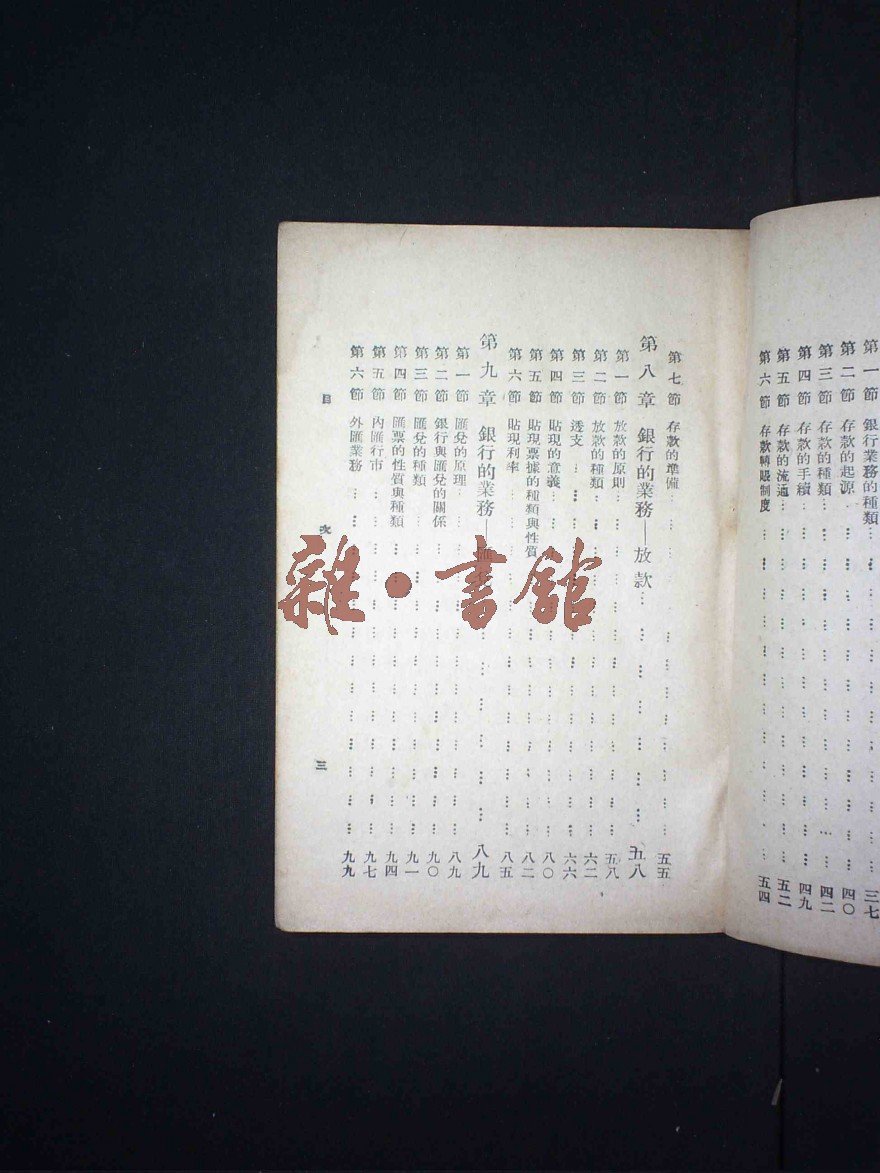 第一節 銀行業務的種類 三七
第二節 存款的起源………………四〇
第三節 存款的種類………………四二
第四節 存款的手續………………四九
第五節 存款的流通………………五二
第六節 存款轉賬制度………………五四
第七節 存款的準備………………五五
第八章 銀行的業務——放款………………五八
第一節 放款的原則………………五八
第二節 放款的種類………………六二
第三節 透支………………六六
第四節 貼現的意義………………八〇
第五節 貼現票據的種類與性質………………八二
第六節 貼現利率………………八五
第九章 銀行的業務——匯兌………………八九
第一節 匯兌的原理………………八九
第二節 銀行與匯兌的關係………………九〇
第三節 匯兌的種類………………九一
第四節 匯票的性質與種類………………九四
第五節 內匯行市………………九七
第六節 外匯業務………………九九
目次 三
雜·書館